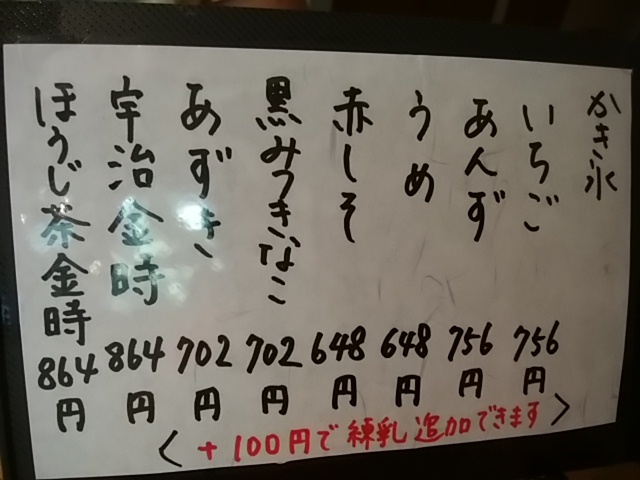 かき氷
いちご 756円
あんず 756円
うめ 648円
赤しそ 648円
黒みつきなこ 702円
あずき 702円
宇治金時 864円
ほうじ茶金時 864円
<+100円で練乳追加できます>